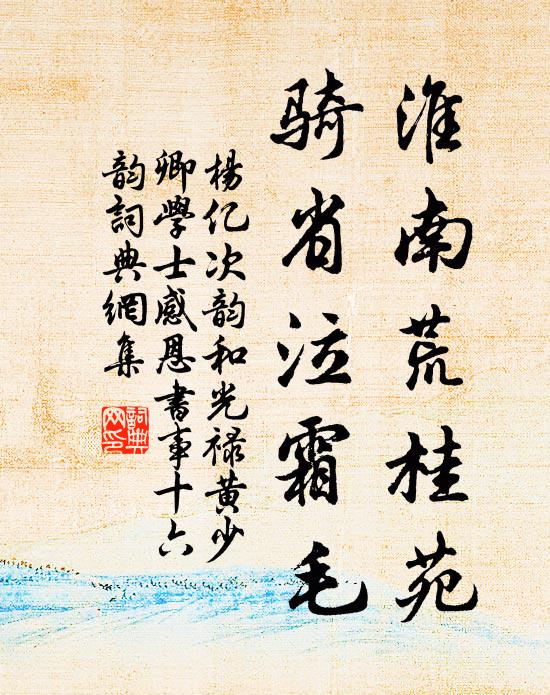 淮南荒桂苑
骑省泣霜毛
楊亿次韵和光禄黄少
卿學士感恩書事十六
韵詞典網集
詞典
网印